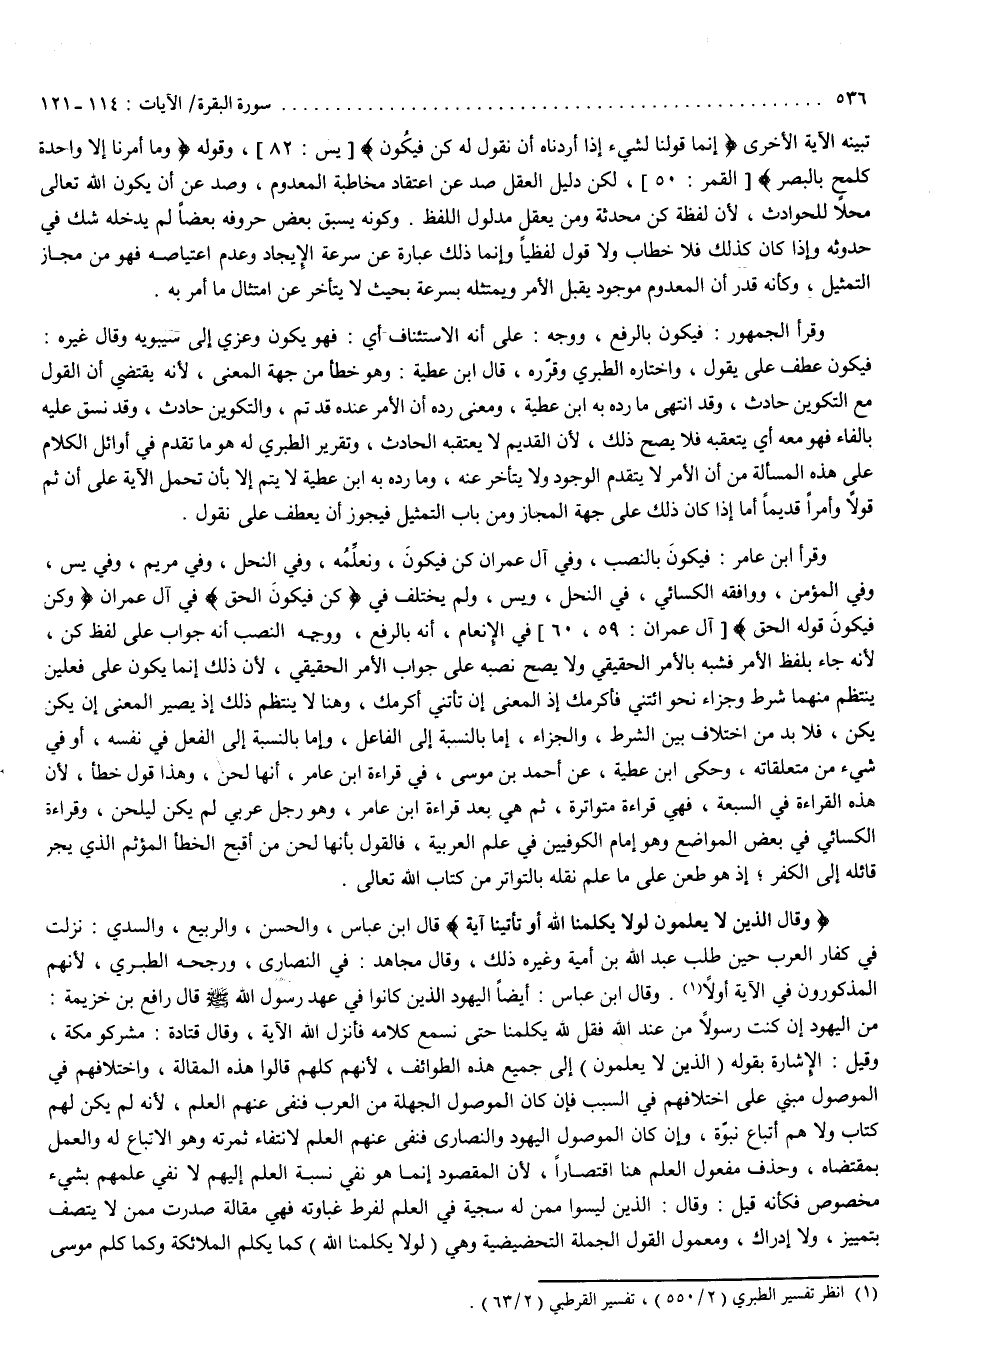 ٥٣٦ .......................................................... سورة البقرة/ الآيات : ١١٤ - ١٢١
تبينه الآية الأخرى ﴿ إنما قولنا لشيء إذا أردناه أن نقول له كن فيكُون ﴾ [ يس : ٨٢ ] ، وقوله ﴿ وما أمرنا إلا واحدة
كلمح بالبصر ﴾ [ القمر : ٥٠ ] ، لكن دليل العقل صد عن اعتقاد مخاطبة المعدوم ، وصد عن أن يكون الله تعالى
محلاً للحوادث ، لأن لفظة كن محدثة ومن يعقل مدلول اللفظ . وكونه يسبق بعض حروفه بعضاً لم يدخله شك في
حدوثه وإذا كان كذلك فلا خطاب ولا قول لفظياً وإنما ذلك عبارة عن سرعة الإيجاد وعدم اعتياصه فهو من مجاز
التمثيل ، وكأنه قدّر أن المعدوم موجود يقبل الأمر ويمتثله بسرعة بحيث لا يتأخر عن امتثال ما أمر به .
وقرأ الجمهور : فيكون بالرفع ، ووجه : على أنه الاستئناف أي : فهو يكون وعزي إلى سيبويه وقال غيره :
فيكون عطف على يقول ، واختاره الطبري وقرّره ، قال ابن عطية : وهو خطأ من جهة المعنى ، لأنه يقتضي أن القول
مع التكوين حادث ، وقد انتهى ما رده به ابن عطية ، ومعنى رده أن الأمر عنده قد تم ، والتكوين حادث ، وقد نسق عليه
بالفاء فهو معه أي يتعقبه فلا يصح ذلك ، لأن القديم لا يعتقبه الحادث ، وتقرير الطبري له هو ما تقدم في أوائل الكلام
على هذه المسألة من أن الأمر لا يتقدم الوجود ولا يتأخر عنه ، وما رده به ابن عطية لا يتم إلا بأن تحمل الآية على أن ثم
قولًا وأمراً قديماً أما إذا كان ذلك على جهة المجاز ومن باب التمثيل فيجوز أن يعطف على نقول .
وقرأ ابن عامر : فيكونَ بالنصب ، وفي آل عمران كن فيكونَ ، ونعلِّمُه ، وفي النحل ، وفي مريم ، وفي يس ،
وفي المؤمن ، ووافقه الكسائي ، في النحل ، ويس ، ولم يختلف في ﴿ كن فيكونَ الحق ﴾ في آل عمران ﴿ وكن
فيكونَ قوله الحق ﴾ [ آل عمران : ٥٩ ، ٦٠ ] في الإنعام ، أنه بالرفع ، ووجه النصب أنه جواب على لفظ كن ،
لأنه جاء بلفظ الأمر فشبه بالأمر الحقيقي ولا يصح نصبه على جواب الأمر الحقيقي ، لأن ذلك إنما يكون على فعلين
ينتظم منهما شرط وجزاء نحو ائتني فأكرمك إذ المعنى إن تأتني أكرمك ، وهنا لا ينتظم ذلك إذ يصير المعنى إن يكن
يكن ، فلا بد من اختلاف بين الشرط ، والجزاء ، إما بالنسبة إلى الفاعل ، وإما بالنسبة إلى الفعل في نفسه ، أو في
شيء من متعلقاته ، وحكى ابن عطية ، عن أحمد بن موسى ، في قراءة ابن عامر ، أنها لحن ، وهذا قول خطأ ، لأن
هذه القراءة في السبعة ، فهي قراءة متواترة ، ثم هي بعد قراءة ابن عامر ، وهو رجل عربي لم يكن ليلحن ، وقراءة
الكسائي في بعض المواضع وهو إمام الكوفيين في علم العربية ، فالقول بأنها لحن من أقبح الخطأ المؤثم الذي يجر
قائله إلى الكفر ؛ إذ هو طعن على ما علم نقله بالتواتر من كتاب الله تعالى .
﴿ وقال الذين لا يعلمون لولا يكلمنا الله أو تأتينا آية ﴾ قال ابن عباس ، والحسن ، والربيع ، والسدي : نزلت
في كفار العرب حين طلب عبد الله بن أمية وغيره ذلك ، وقال مجاهد : في النصارى ، ورجحه الطبري ، لأنهم
المذكورون في الآية أولاً(١) . وقال ابن عباس : أيضاً اليهود الذين كانوا في عهد رسول الله ﷺ قال رافع بن خزيمة :
من اليهود إن كنت رسولاً من عند الله فقل لله يكلمنا حتى نسمع كلامه فأنزل الله الآية ، وقال قتادة : مشركو مكة ،
وقيل : الإشارة بقوله ( الذين لا يعلمون ) إلى جميع هذه الطوائف ، لأنهم كلهم قالوا هذه المقالة ، واختلافهم في
الموصول مبني على اختلافهم في السبب فإن كان الموصول الجهلة من العرب فنفى عنهم العلم ، لأنه لم يكن لهم
كتاب ولا هم أتباع نبوّة ، وإن كان الموصول اليهود والنصارى فنفى عنهم العلم لانتفاء ثمرته وهو الاتباع له والعمل
بمقتضاه ، وحذف مفعول العلم هنا اقتصاراً ، لأن المقصود إنما هو نفي نسبة العلم إليهم لا نفي علمهم بشيء
مخصوص فكأنه قيل : وقال : الذين ليسوا ممن له سجية في العلم لفرط غباوته فهي مقالة صدرت ممن لا يتصف
بتمييز ، ولا إدراك ، ومعمول القول الجملة التحضيضية وهي ( لولا يكلمنا الله ) كما يكلم الملائكة وكما كلم موسى
(١) انظر تفسير الطبري ( ٥٥٠/٢ ) ، تفسير القرطبي ( ٦٣/٢ ) .